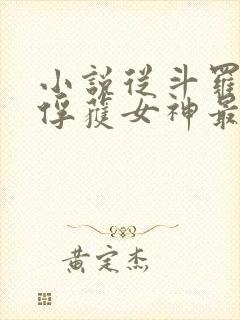 小說從斗羅
俘獲女神最
黃定杰